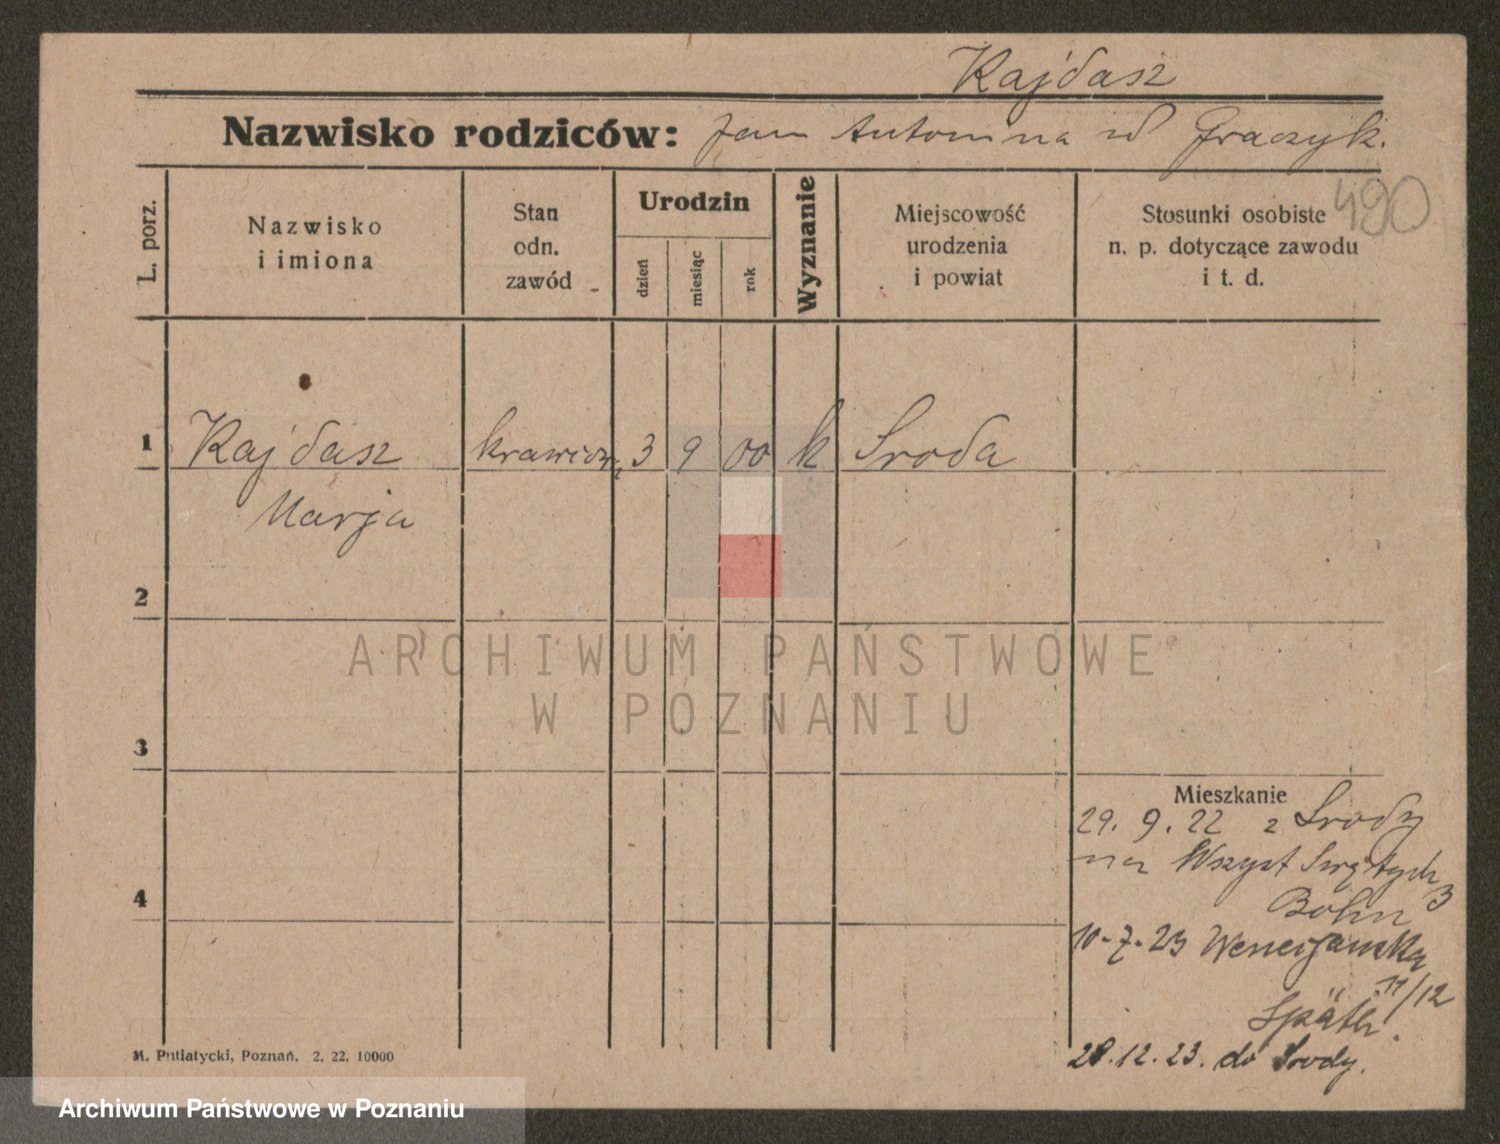 Kajdasz
Nazwisko rodziców: Jan Antonina z d Graczyk.
490
L. porz.
Nazwisko
i imiona
Stan
odn.
zawód
Urodzin
dzień
miesiąc
rok
Wyznanie
Miejscowość
urodzenia
i powiat
Stosunki osobiste
n. p. dotyczące zawodu
i t. d.
1 Kajdasz 3 9 00 k Sroda
Marja
2
ARCHIWUM PAŃSTWOWE
W POZNANIU
3
Mieszkanie
29. 9. 22 z Srody
na Wszyst Swętych
3
Bohn
4
10-7-23 Wenecjanska
11/12
Späth.
28.12.23. do Srody.
M. Putiatycki, Poznań. 2. 22. 10000
Archiwum Państwowe w Poznaniu